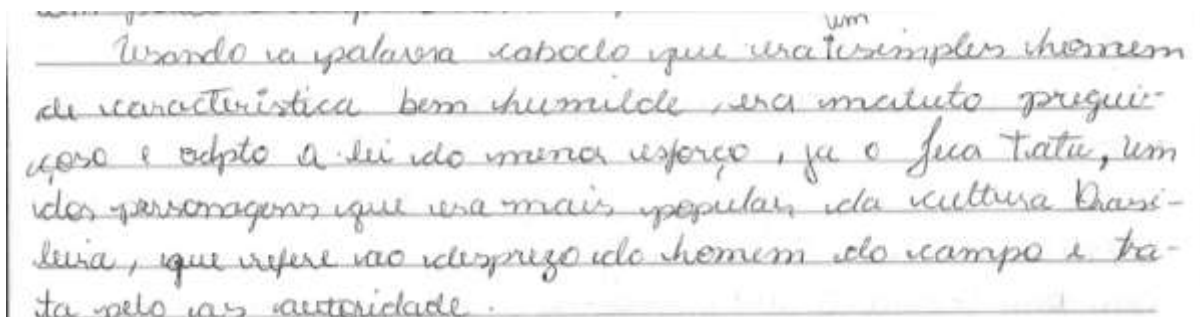 Usando a palavra caboclo que era um simples homem
de caracteristica bem humilde, era matuto pregui-
çoso e adpto a lei do menor esforço, ja o Jeca Tatu, um
dos personagens que era mais popular da cultura brasi-
leira, que refere ao desprezo do homem do campo e tra-
ta pelo as autoridade.